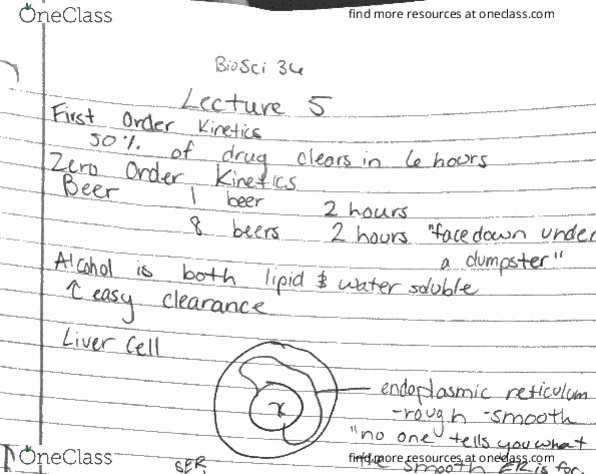 OneClass
find more resources at oneclass.com
BioSci 36
Lecture 5
First Order Kinetics
50% of drug clears in 6 hours
Zero Order Kinetics
Beer 1 beer 2 hours
8 beers 2 hours "facedown under
a dumpster"
Alcohol is both lipid & water soluble
↑ easy clearance
Liver Cell
endoplasmic reticulum
-rough -smooth
"no one tells you what
the smooth ER is for
SER
OneClass
find more resources at oneclass.com